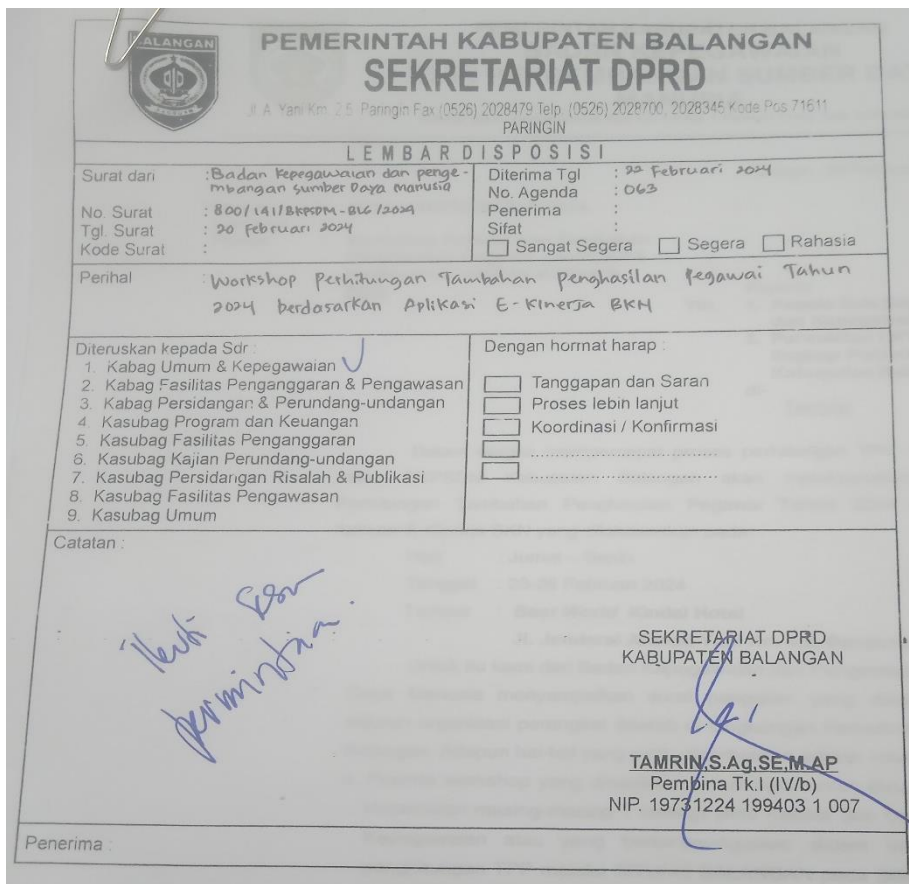 BALANGAN
PEMERINTAH KABUPATEN BALANGAN
SEKRETARIAT DPRD
Jl. A. Yani Km. 2,5 Paringin Fax (0526) 2028479 Telp. (0526) 2028700, 2028345 Kode Pos 71611
PARINGIN
LEMBAR DISPOSISI
Surat dari : Badan Kepegawaian dan penge-
mbangan sumber Daya manusia
No. Surat : 800/141/BKPSDM-BLG/2024
Tgl. Surat : 20 Februari 2024
Kode Surat :
Diterima Tgl : 22 Februari 2024
No. Agenda : 063
Penerima :
Sifat :
Sangat Segera Segera Rahasia
Perihal : Workshop Perhitungan Tambahan Penghasilan Pegawai Tahun
2024 berdasarkan Aplikasi E-Kinerja BKN
Diteruskan kepada Sdr :
1. Kabag Umum & Kepegawaian
2. Kabag Fasilitas Penganggaran & Pengawasan
3. Kabag Persidangan & Perundang-undangan
4. Kasubag Program dan Keuangan
5. Kasubag Fasilitas Penganggaran
6. Kasubag Kajian Perundang-undangan
7. Kasubag Persidangan Risalah & Publikasi
8. Kasubag Fasilitas Pengawasan
9. Kasubag Umum
Dengan hormat harap :
Tanggapan dan Saran
Proses lebih lanjut
Koordinasi / Konfirmasi
Catatan :
Ikuti
permintaan.
SEKRETARIAT DPRD
KABUPATEN BALANGAN
TAMRIN,S.Ag,SE,M.AP
Pembina Tk.I (IV/b)
NIP. 19731224 199403 1 007
Penerima :